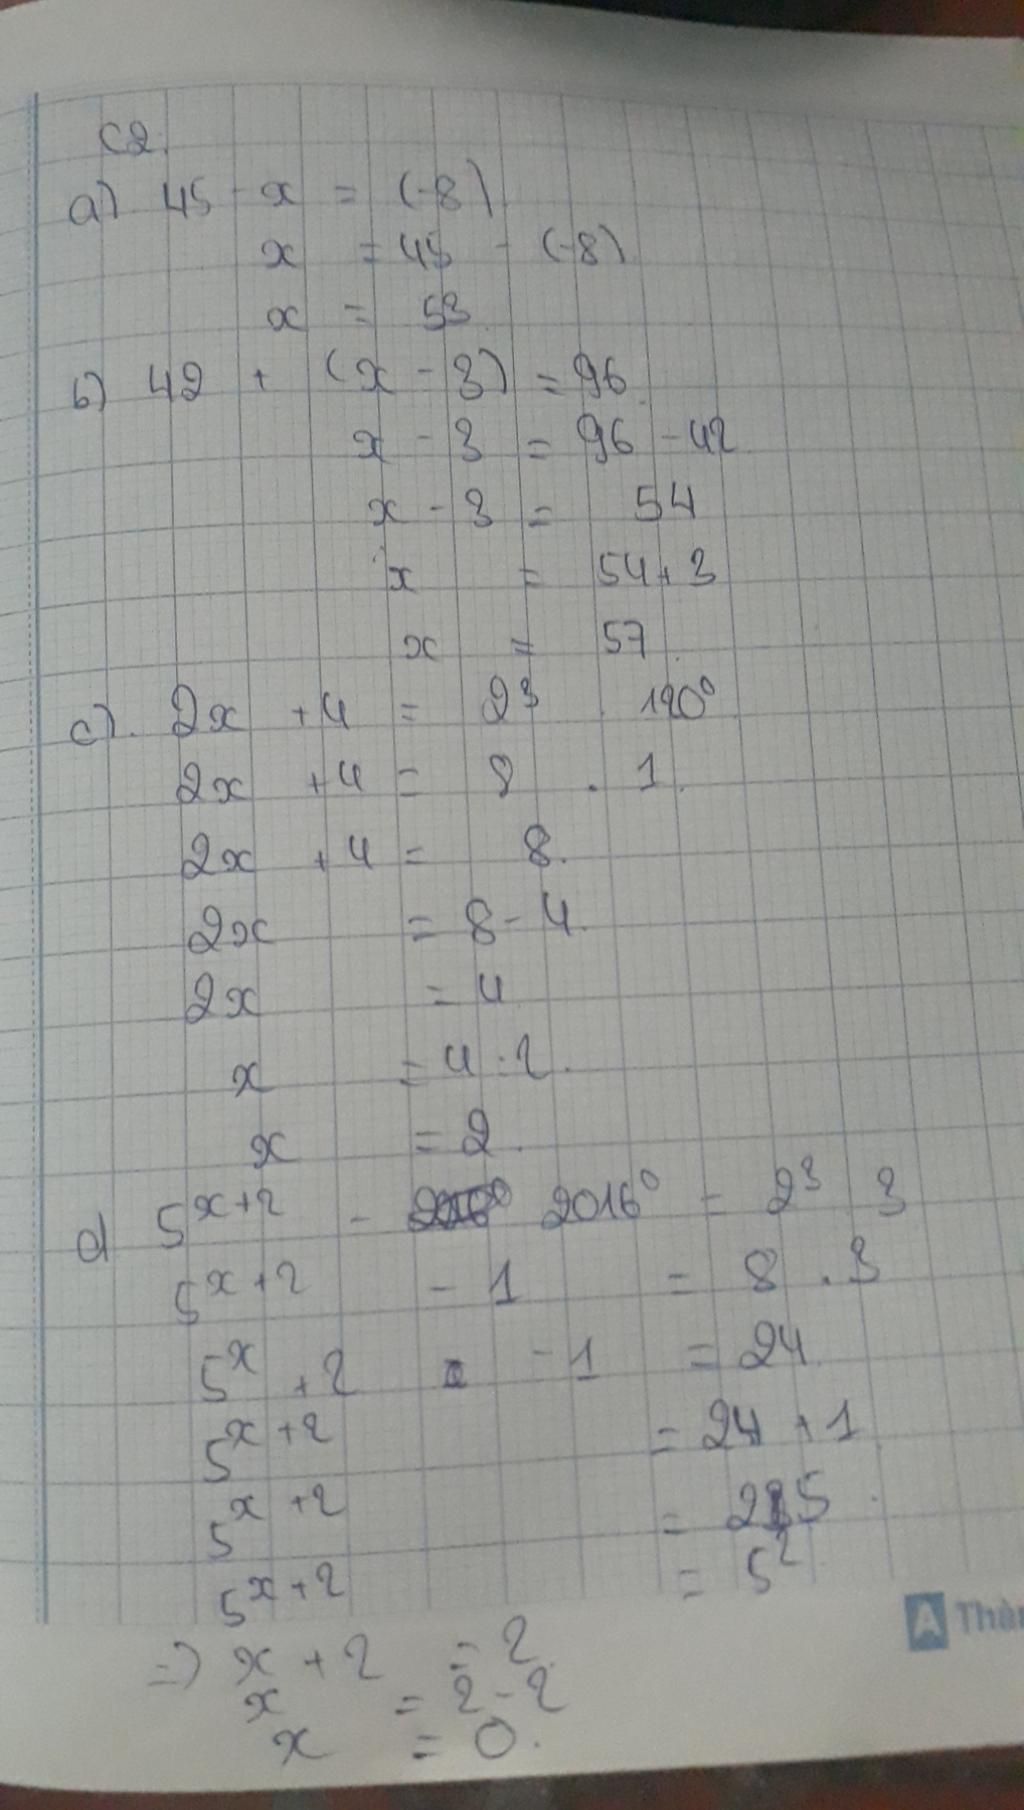 C2.
a) 45 - x = (-8)
x = 45 - (-8)
x = 53.
b) 42 + (x - 3) = 96
x - 3 = 96 - 42
x - 3 = 54
x = 54 + 3
x = 57.
c). 2x + 4 = 2³ . 120⁰
2x + 4 = 8 . 1.
2x + 4 = 8.
2x = 8 - 4.
2x = 4
x = 4 : 2.
x = 2.
d) 5ˣ⁺² - 2016⁰ = 2³ 3
5ˣ⁺² - 1 = 8 . 3
5ˣ + 2 - 1 = 24
5ˣ⁺² = 24 + 1
5ˣ⁺² = 25.
5ˣ⁺² = 5²
=) x + 2 = 2.
x = 2 - 2
x = 0.